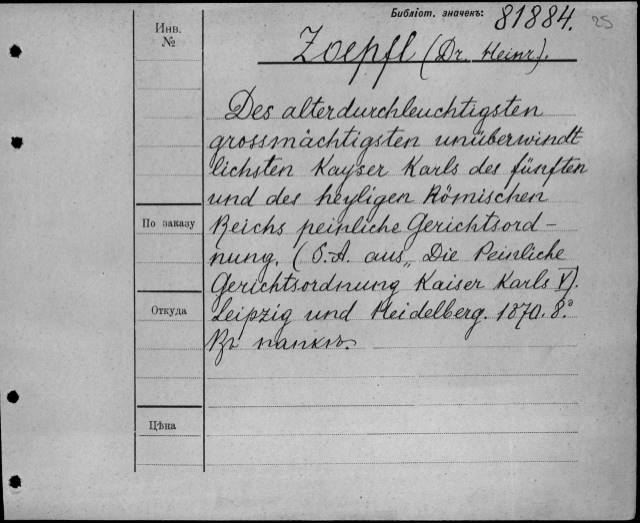 Библіот. значекъ: 81884.
25
Инв.
№
Zoepfl (Dr. Heinr).
Des alterdurchleuchtigsten
grossmächtigsten unüberwindt
lichsten Kayser Karls des fünften
und des heyligen Römischen
Reichs peinliche Gerichtsord-
nung. (S.A. aus „Die Peinliche
Gerichtsordnung Kaiser Karls V).
Leipzig und Heidelberg. 1870. 8.°
Въ папкъ.
По заказу
Откуда
Цѣна